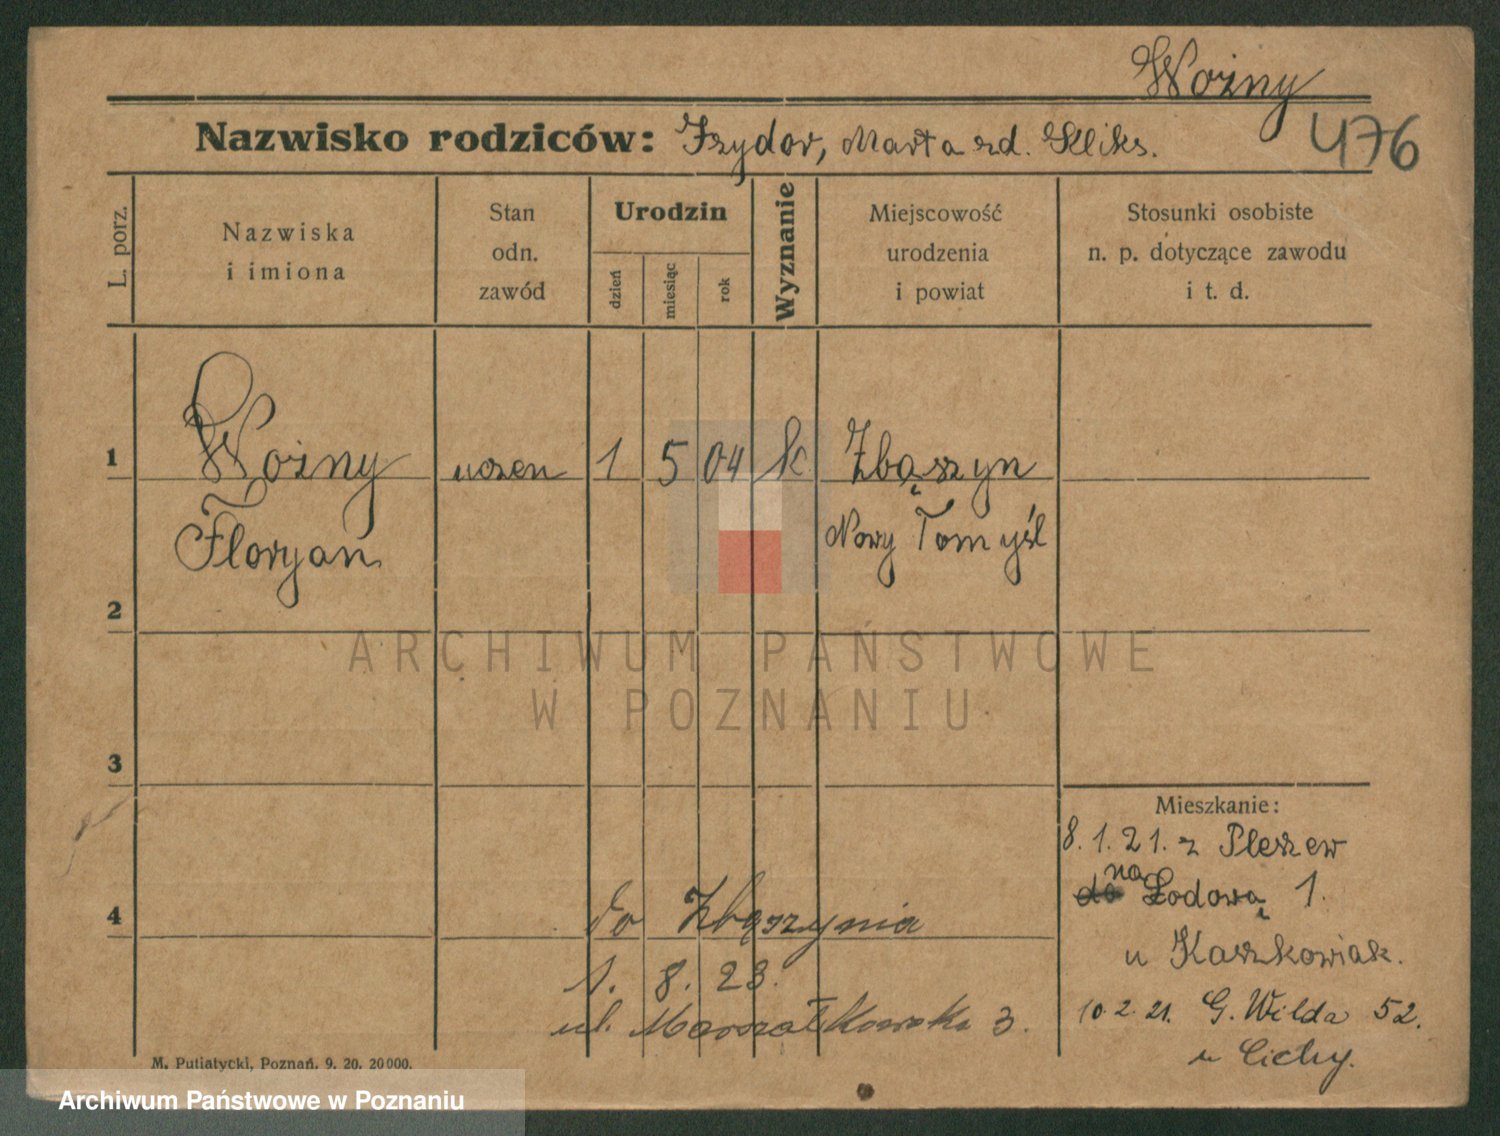 Wożny
Nazwisko rodziców: Izydor, Marta rzd. Kliks.
476
L. porz.
Nazwiska
i imiona
Stan
odn.
zawód
Urodzin
dzień
miesiąc
rok
Wyznanie
Miejscowość
urodzenia
i powiat
Stosunki osobiste
n. p. dotyczące zawodu
i t. d.
1
Wożny
uczen
1
5
04
k
Zbąszyn
Floryan
Nowy Tomyśl
2
ARCHIWUM PAŃSTWOWE
W POZNANIU
3
Mieszkanie:
8. 1. 21. z Pleszew
na
do Łodową 1.
4
do Zbąszynia
u Kaszkowiak.
1. 8. 23.
10. 2. 21. G. Wilda 52.
ul. Marszałkowska 3.
u Cichy.
M. Putiatycki, Poznań, 9. 20. 20000.
Archiwum Państwowe w Poznaniu